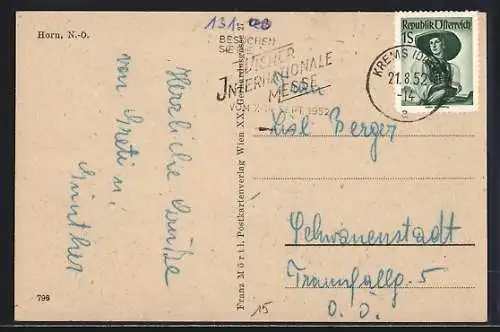 Horn, N.-Ö.
131.-
BESUCHEN
SIE DIE
WIENER
INTERNATIONALE
MESSE
SEPT. 1952
Republik Österreich
1S
KREMS
21.8.52
-14
a
Herzliche Grüße
von Greti u.
Günther
Franz Mörtl, Postkartenverlag Wien XX, Gerhardusgasse 27
Lisl Berger
Schwanenstadt
Traunfallg. 5
O. Ö.
798
15